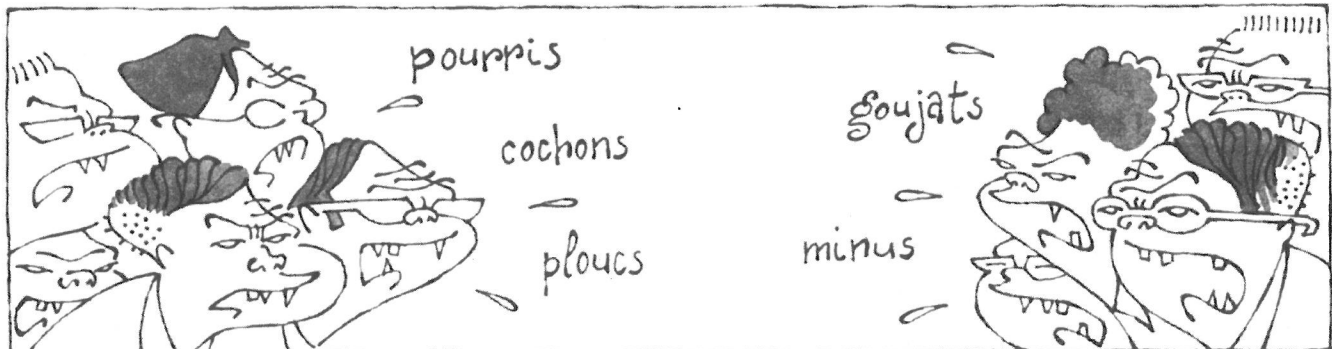 pourris
cochons
ploucs
goujats
minus